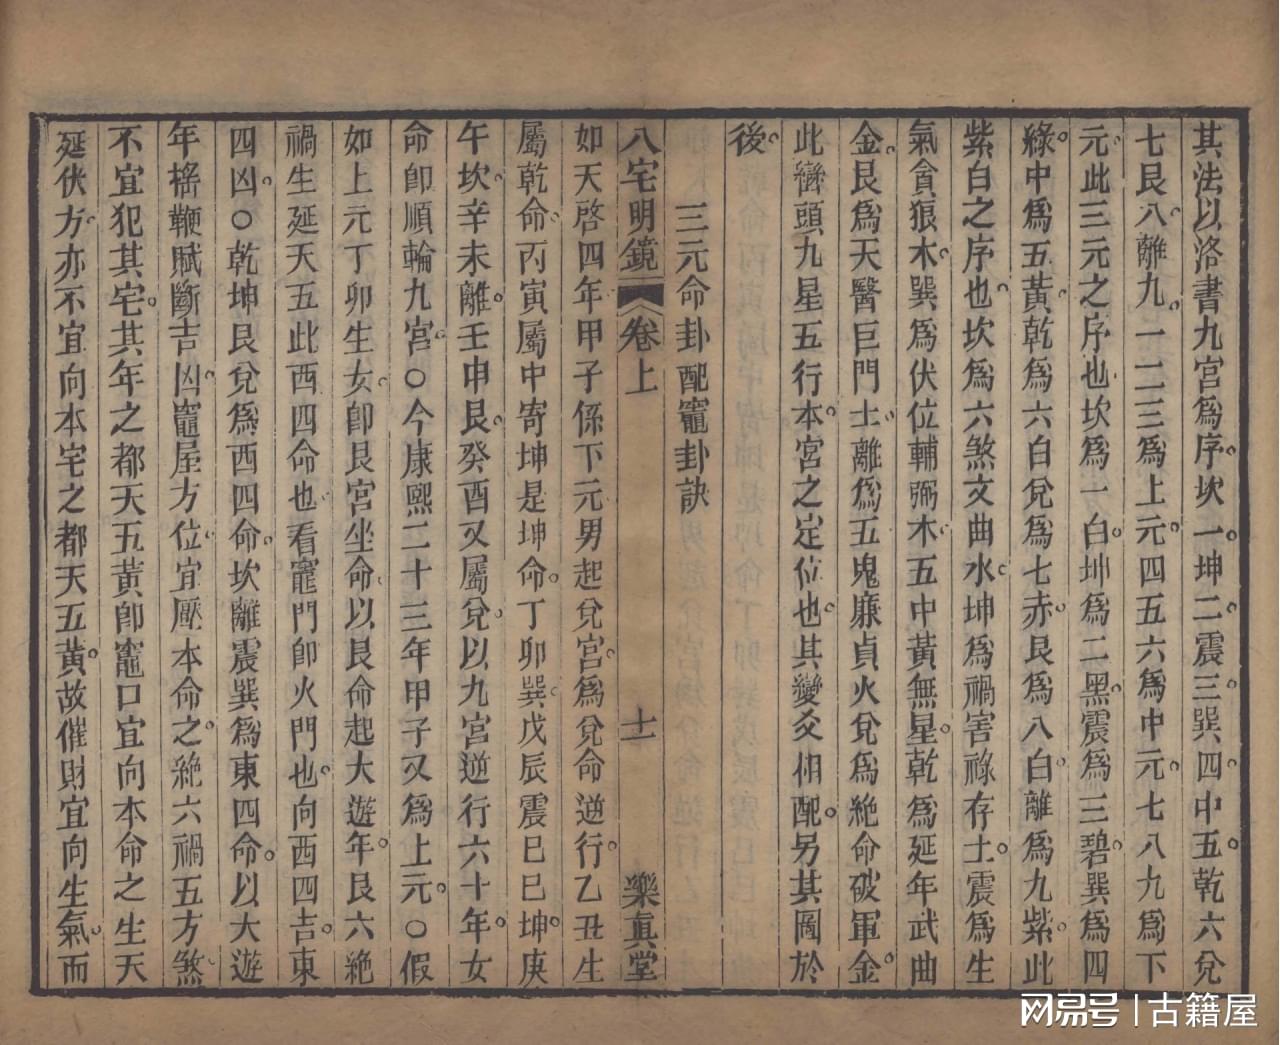 其法以洛書九宮爲序。坎一。坤二。震三。巽四。中五。乾六兌
七艮八。離九。一二三爲上元。四五六爲中元。七八九爲下
元。此三元之序也坎爲一白。坤爲二黑。震爲三碧。巽爲四
綠。中爲五黃。乾爲六白兌爲七赤。艮爲八白。離爲九紫。此
紫白之序也。坎爲六煞文曲水。坤爲禍害祿存土。震爲生
氣貪狼木。巽爲伏位輔弼木。五中黃無星。乾爲延年武曲
金。艮爲天醫巨門土。離爲五鬼廉貞火兌爲絶命破軍金。
此巒頭九星五行。本宮之定位也。其變爻相配。另具圖於
後。
三元命卦配竈卦訣
八宅明鏡 卷上 十一 樂真堂
如天啓四年甲子係下元男起兌宮。爲兌命逆行。乙丑生
屬乾命。丙寅屬中寄坤是坤命。丁卯巽。戊辰震己巳坤。庚
午坎。辛未離。壬申艮。癸酉又屬兌。以九宮逆行六十年。女
命卽順輪九宮。○今康熙二十三年甲子又爲上元。○假
如上元丁卯生女。卽艮宮坐命。以艮命起大遊年。艮六絶
禍生延天五此西四命也。看竈門卽火門也。向西四吉。東
四凶。○乾坤艮兌爲西四命。坎離震巽爲東四命。以大遊
年搖鞭賦斷吉凶。竈屋方位。宜壓本命之。絶六禍五方煞。
不宜犯其宅。其年之都天五黃卽竈口宜向本命之生天
延伏方。亦不宜向本宅之都天五黃。故催財宜向生氣。而
网易号 | 古籍屋